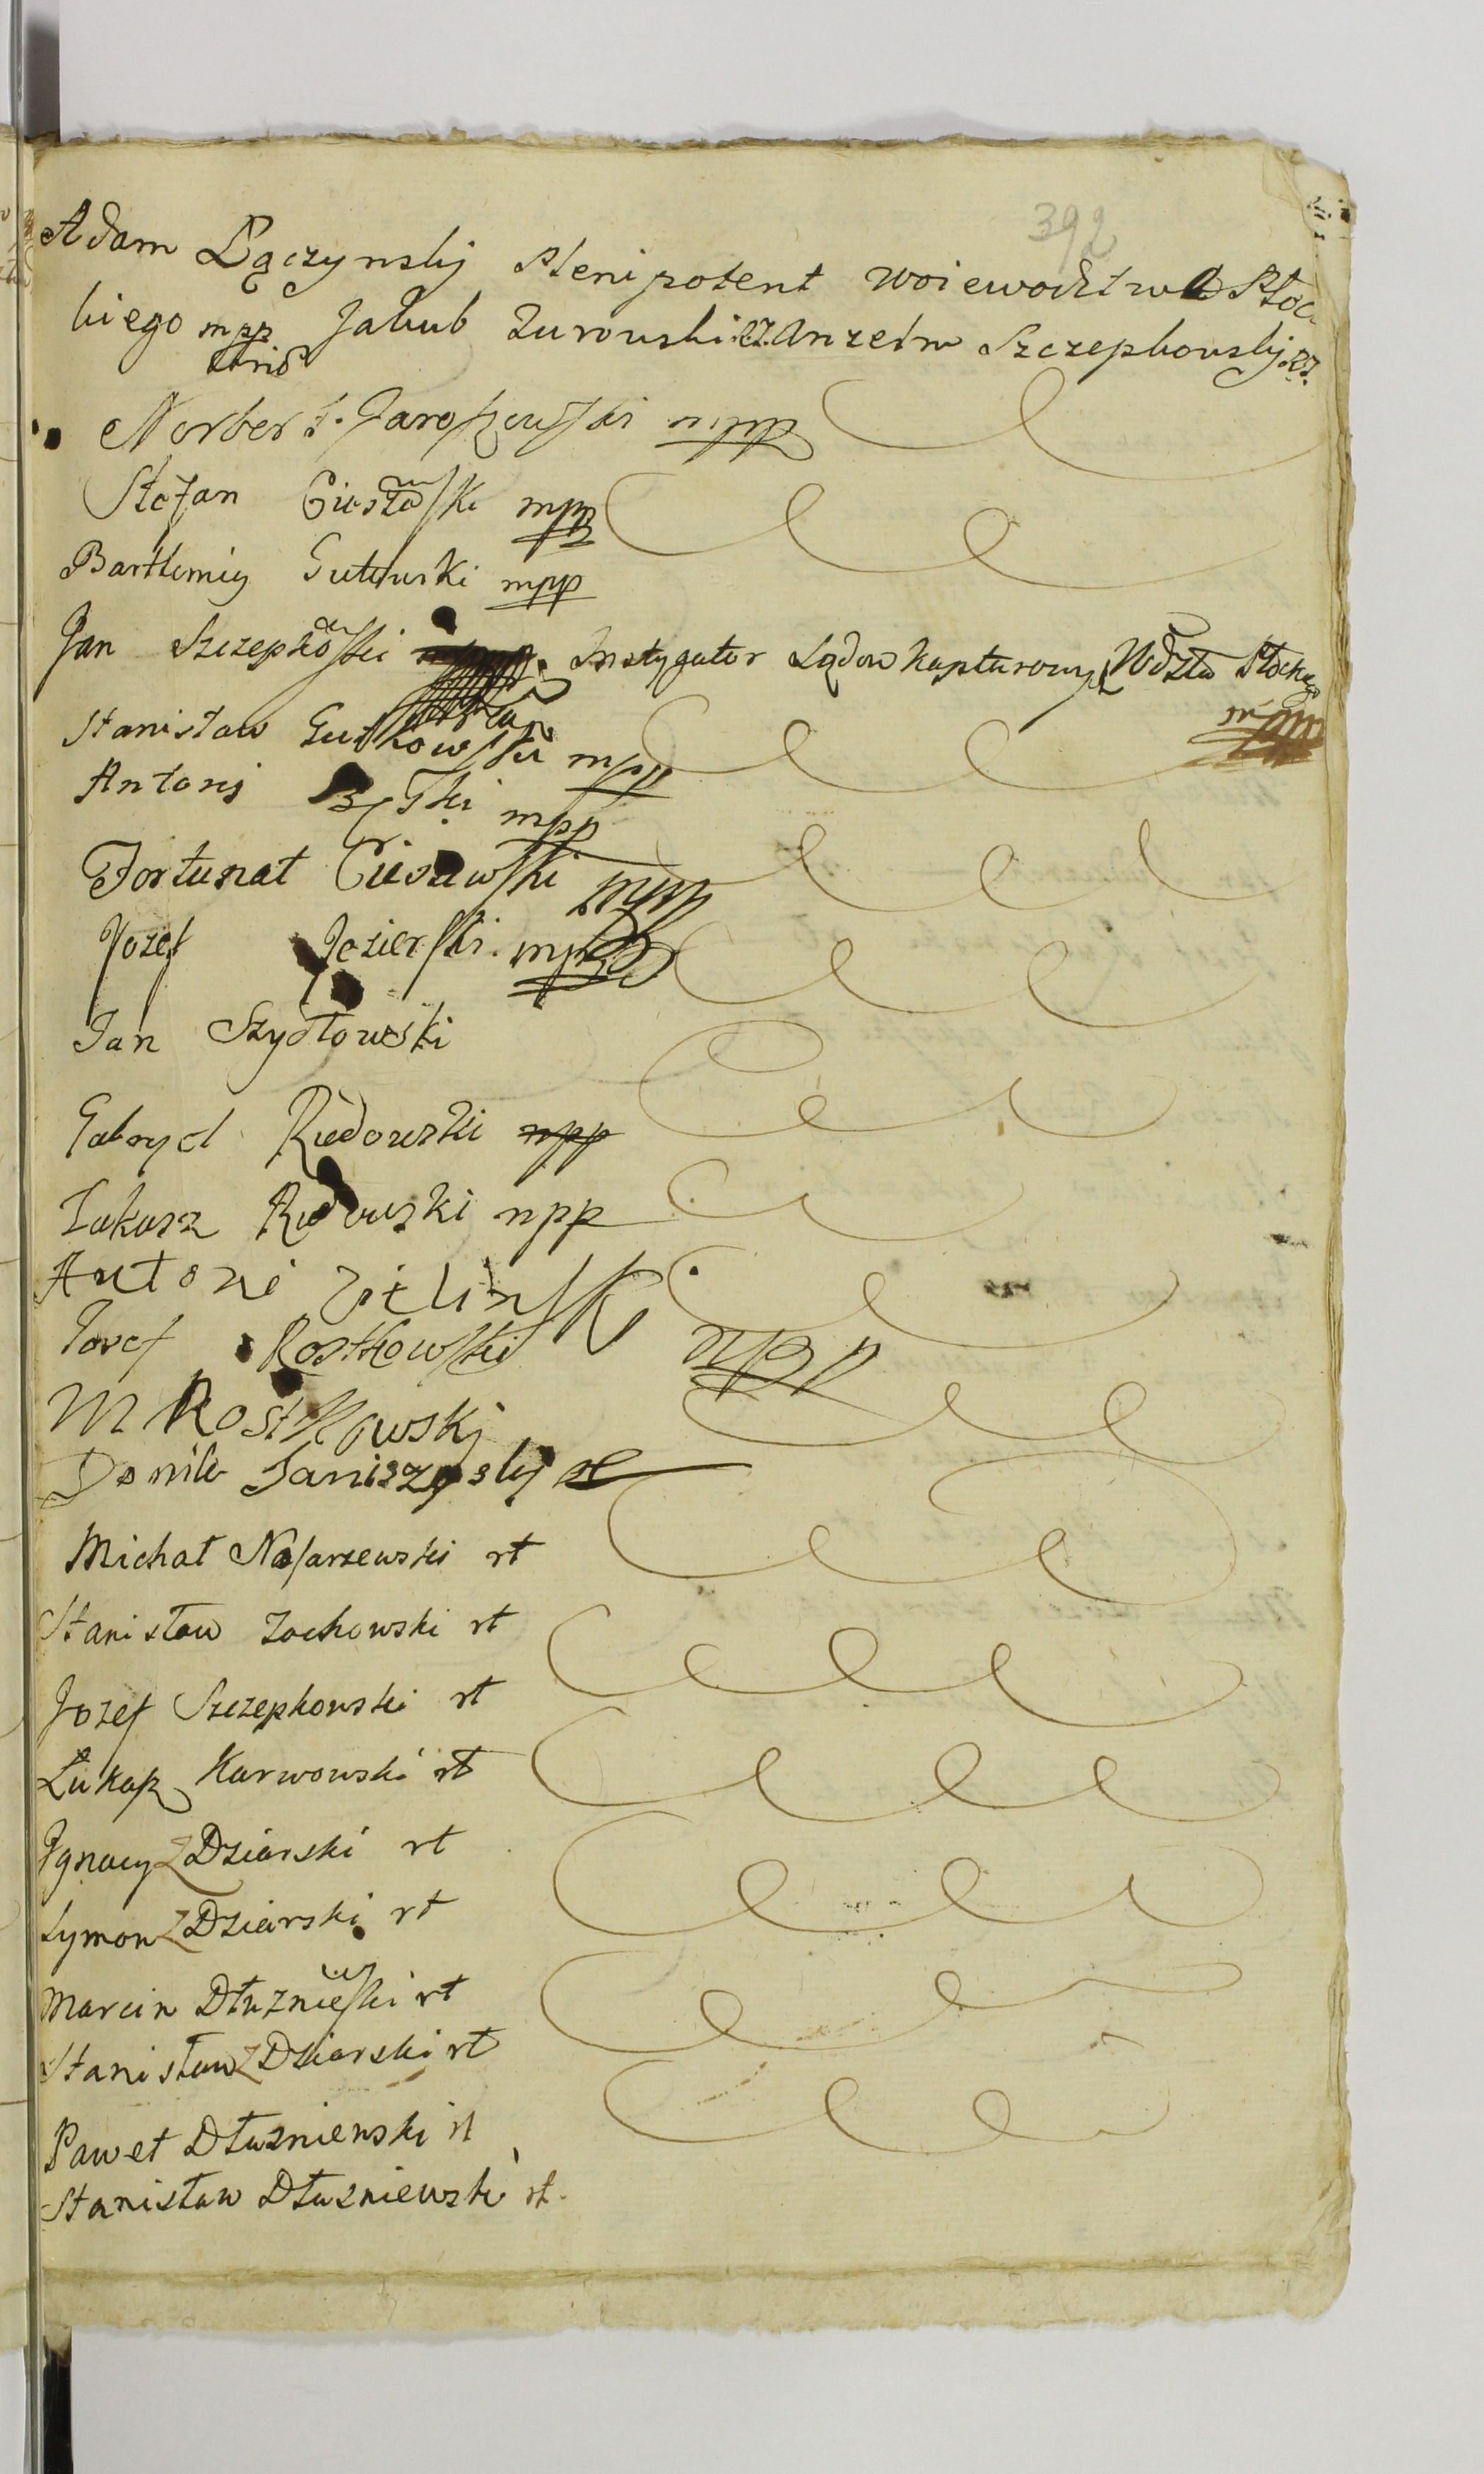 392
Adam Łączynsky Plenipotent woiewodztwa Płoc
kiego mpp Jakub Zurowski RZ Anzelm Szczepkowsky RZ
Norbert Jaroszewski mpp
Stefan Ciesłaski mpp
Bartłomiy Gutowski mpp
Jan Szczepkoski Instygator Sądow Kapturowych Wdztwa Płockgo
mpp
Stanisław Gutkowski mpp
Antoni mpp
Fortunat mpp
Jozef Jezierski mpp
Jan Szydłowski
Gabryel Rudowski mpp
Łukasz Rudowski mpp
Antoni Zielinski mpp
Jozef Rostkowski
M Rostkowski
Taniszesky
Michał Nasarzewski rt
Stanisław Zochowski rt
Jozef Szczepkowski rt
Łukasz Karwowski rt
Jgnacy Zdziarski rt
Symon Zdziarski rt
Marcin Dłuznieski rt
Stanisław Zdziarski rt
Paweł Dłuzniewski rt
Stanisław Dłuzniewski rt